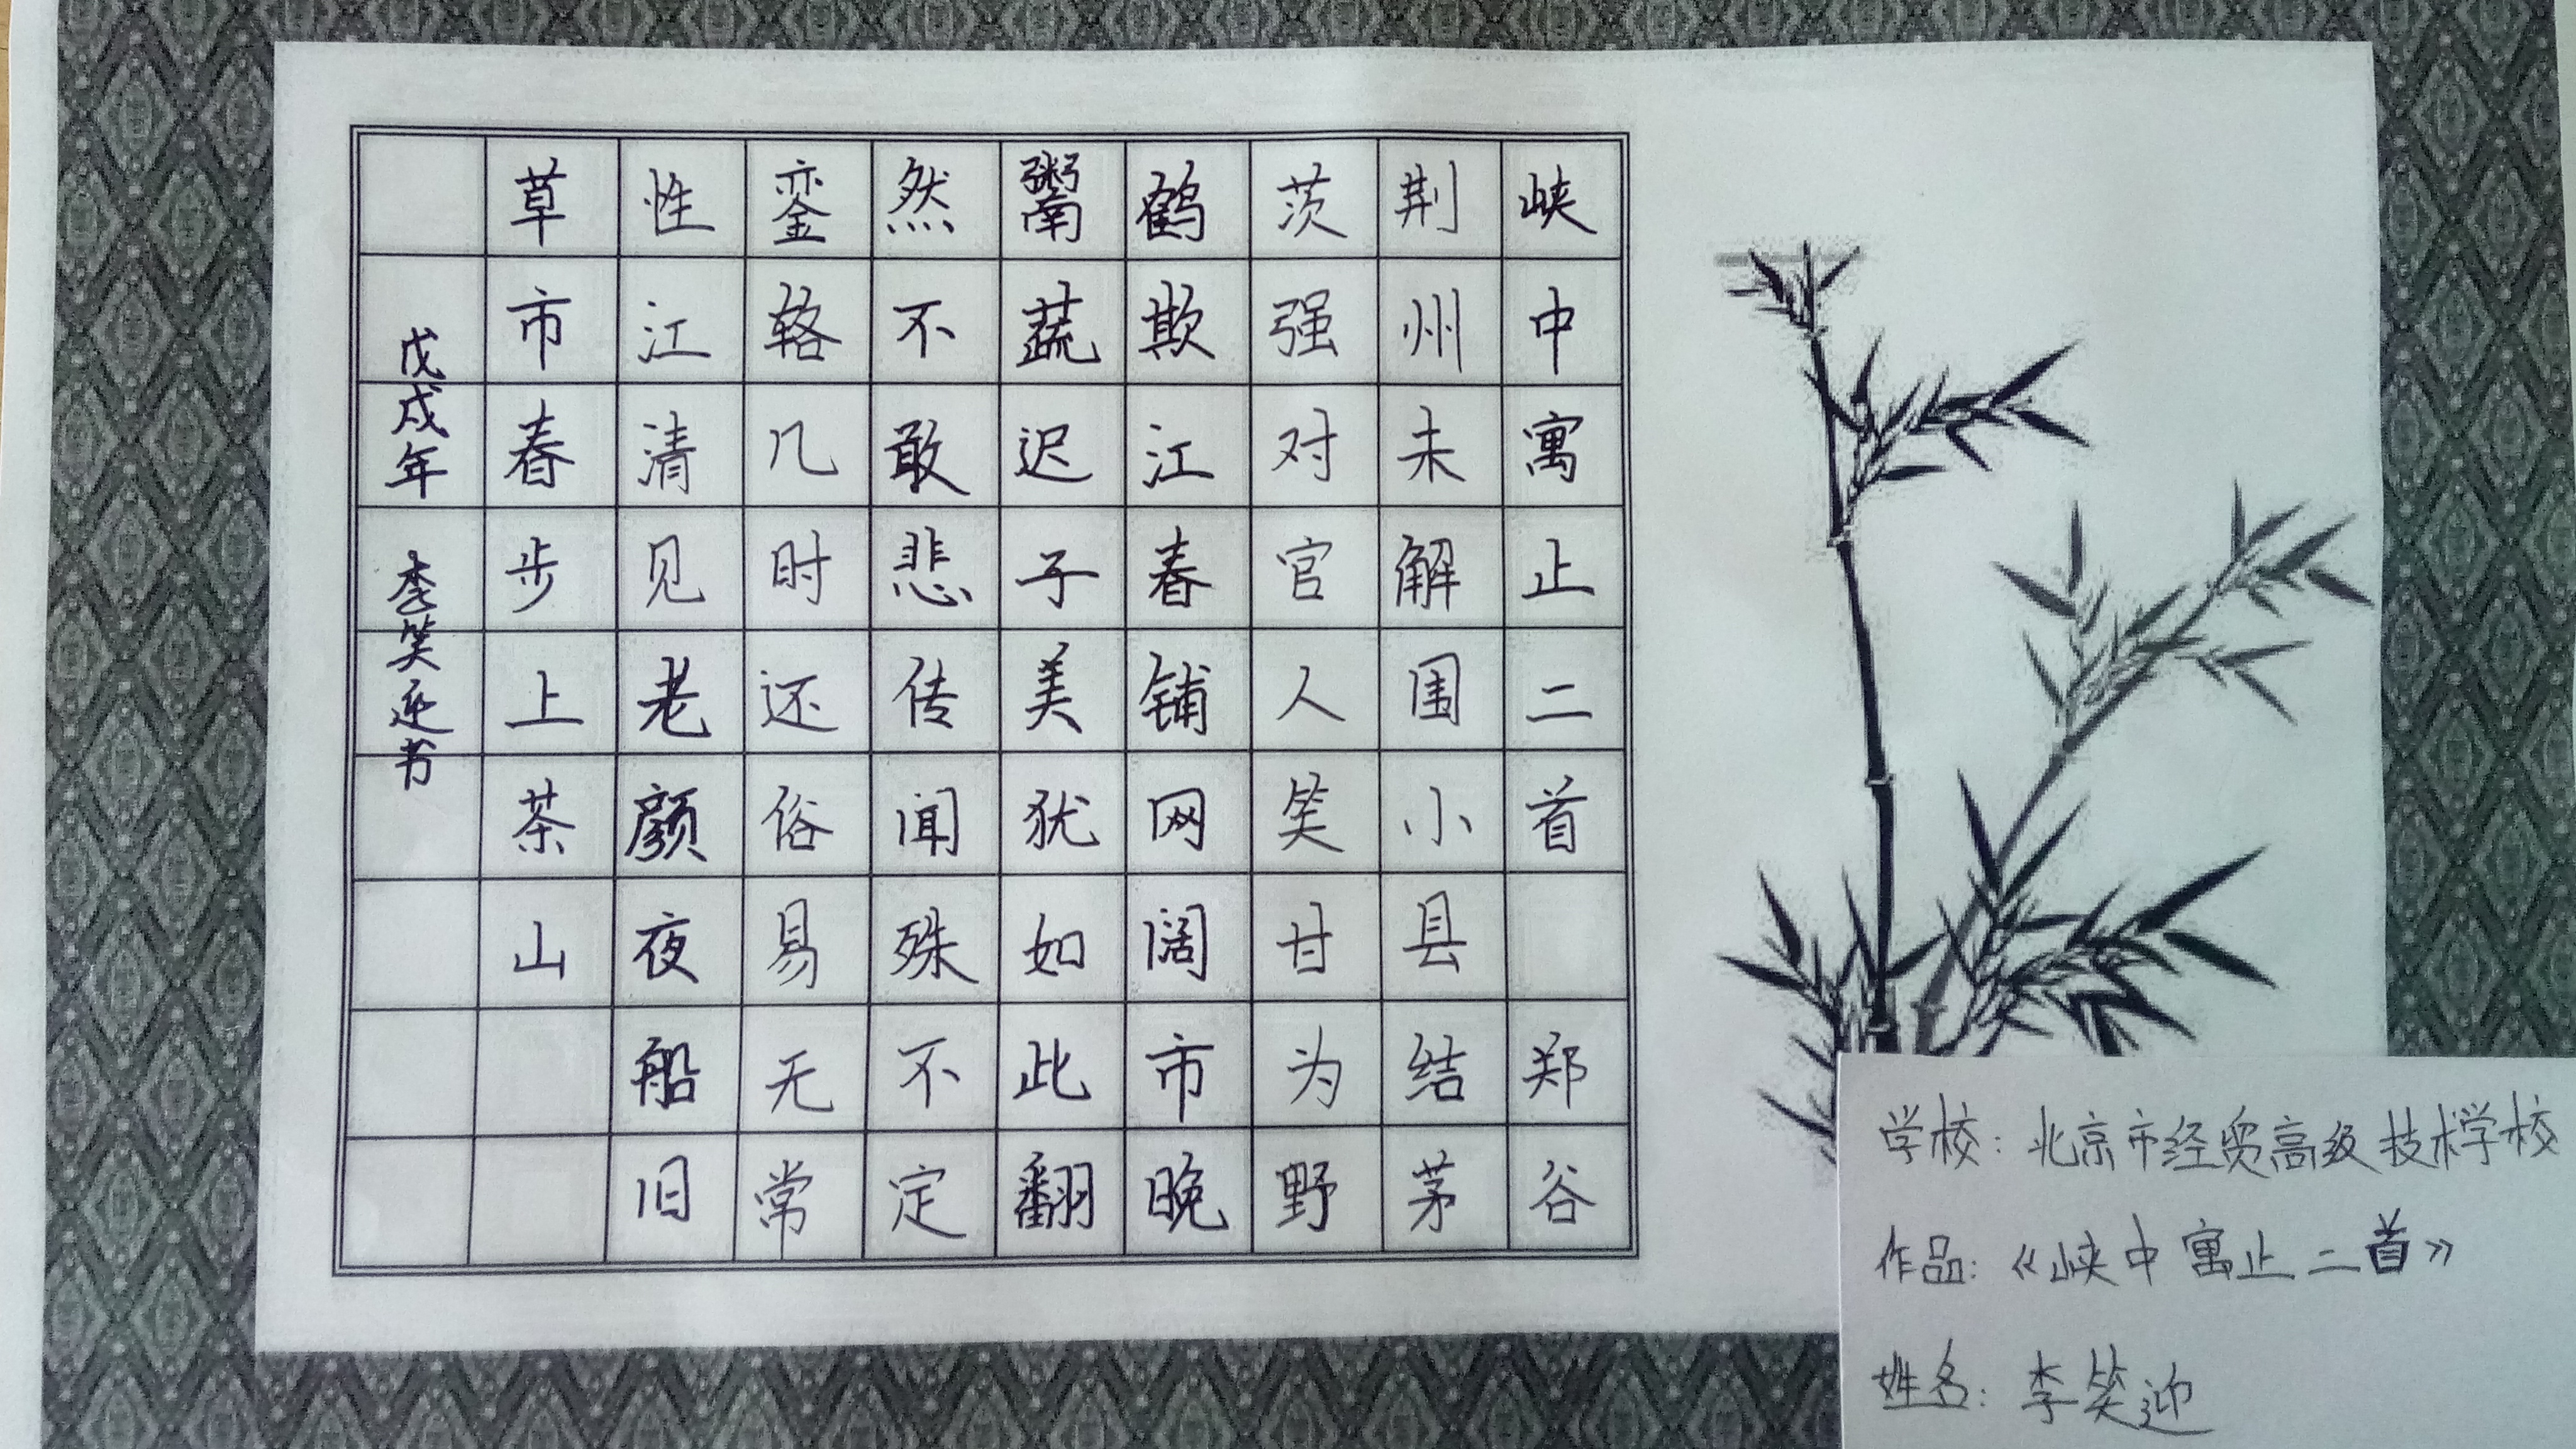 峡中寓止二首 郑谷
荆州未解围小县结茅
茨强对官人笑甘为野
鹤欺江春铺网阔市晚
鬻蔬迟子美犹如此翻
然不敢悲传闻殊不定
銮辂几时还俗易无常
性江清见老颜夜船旧
草市春步上茶山
戊戌年 李笑迎书
学校：北京市经贸高级技术学校
作品：《峡中寓止二首》
姓名：李笑迎